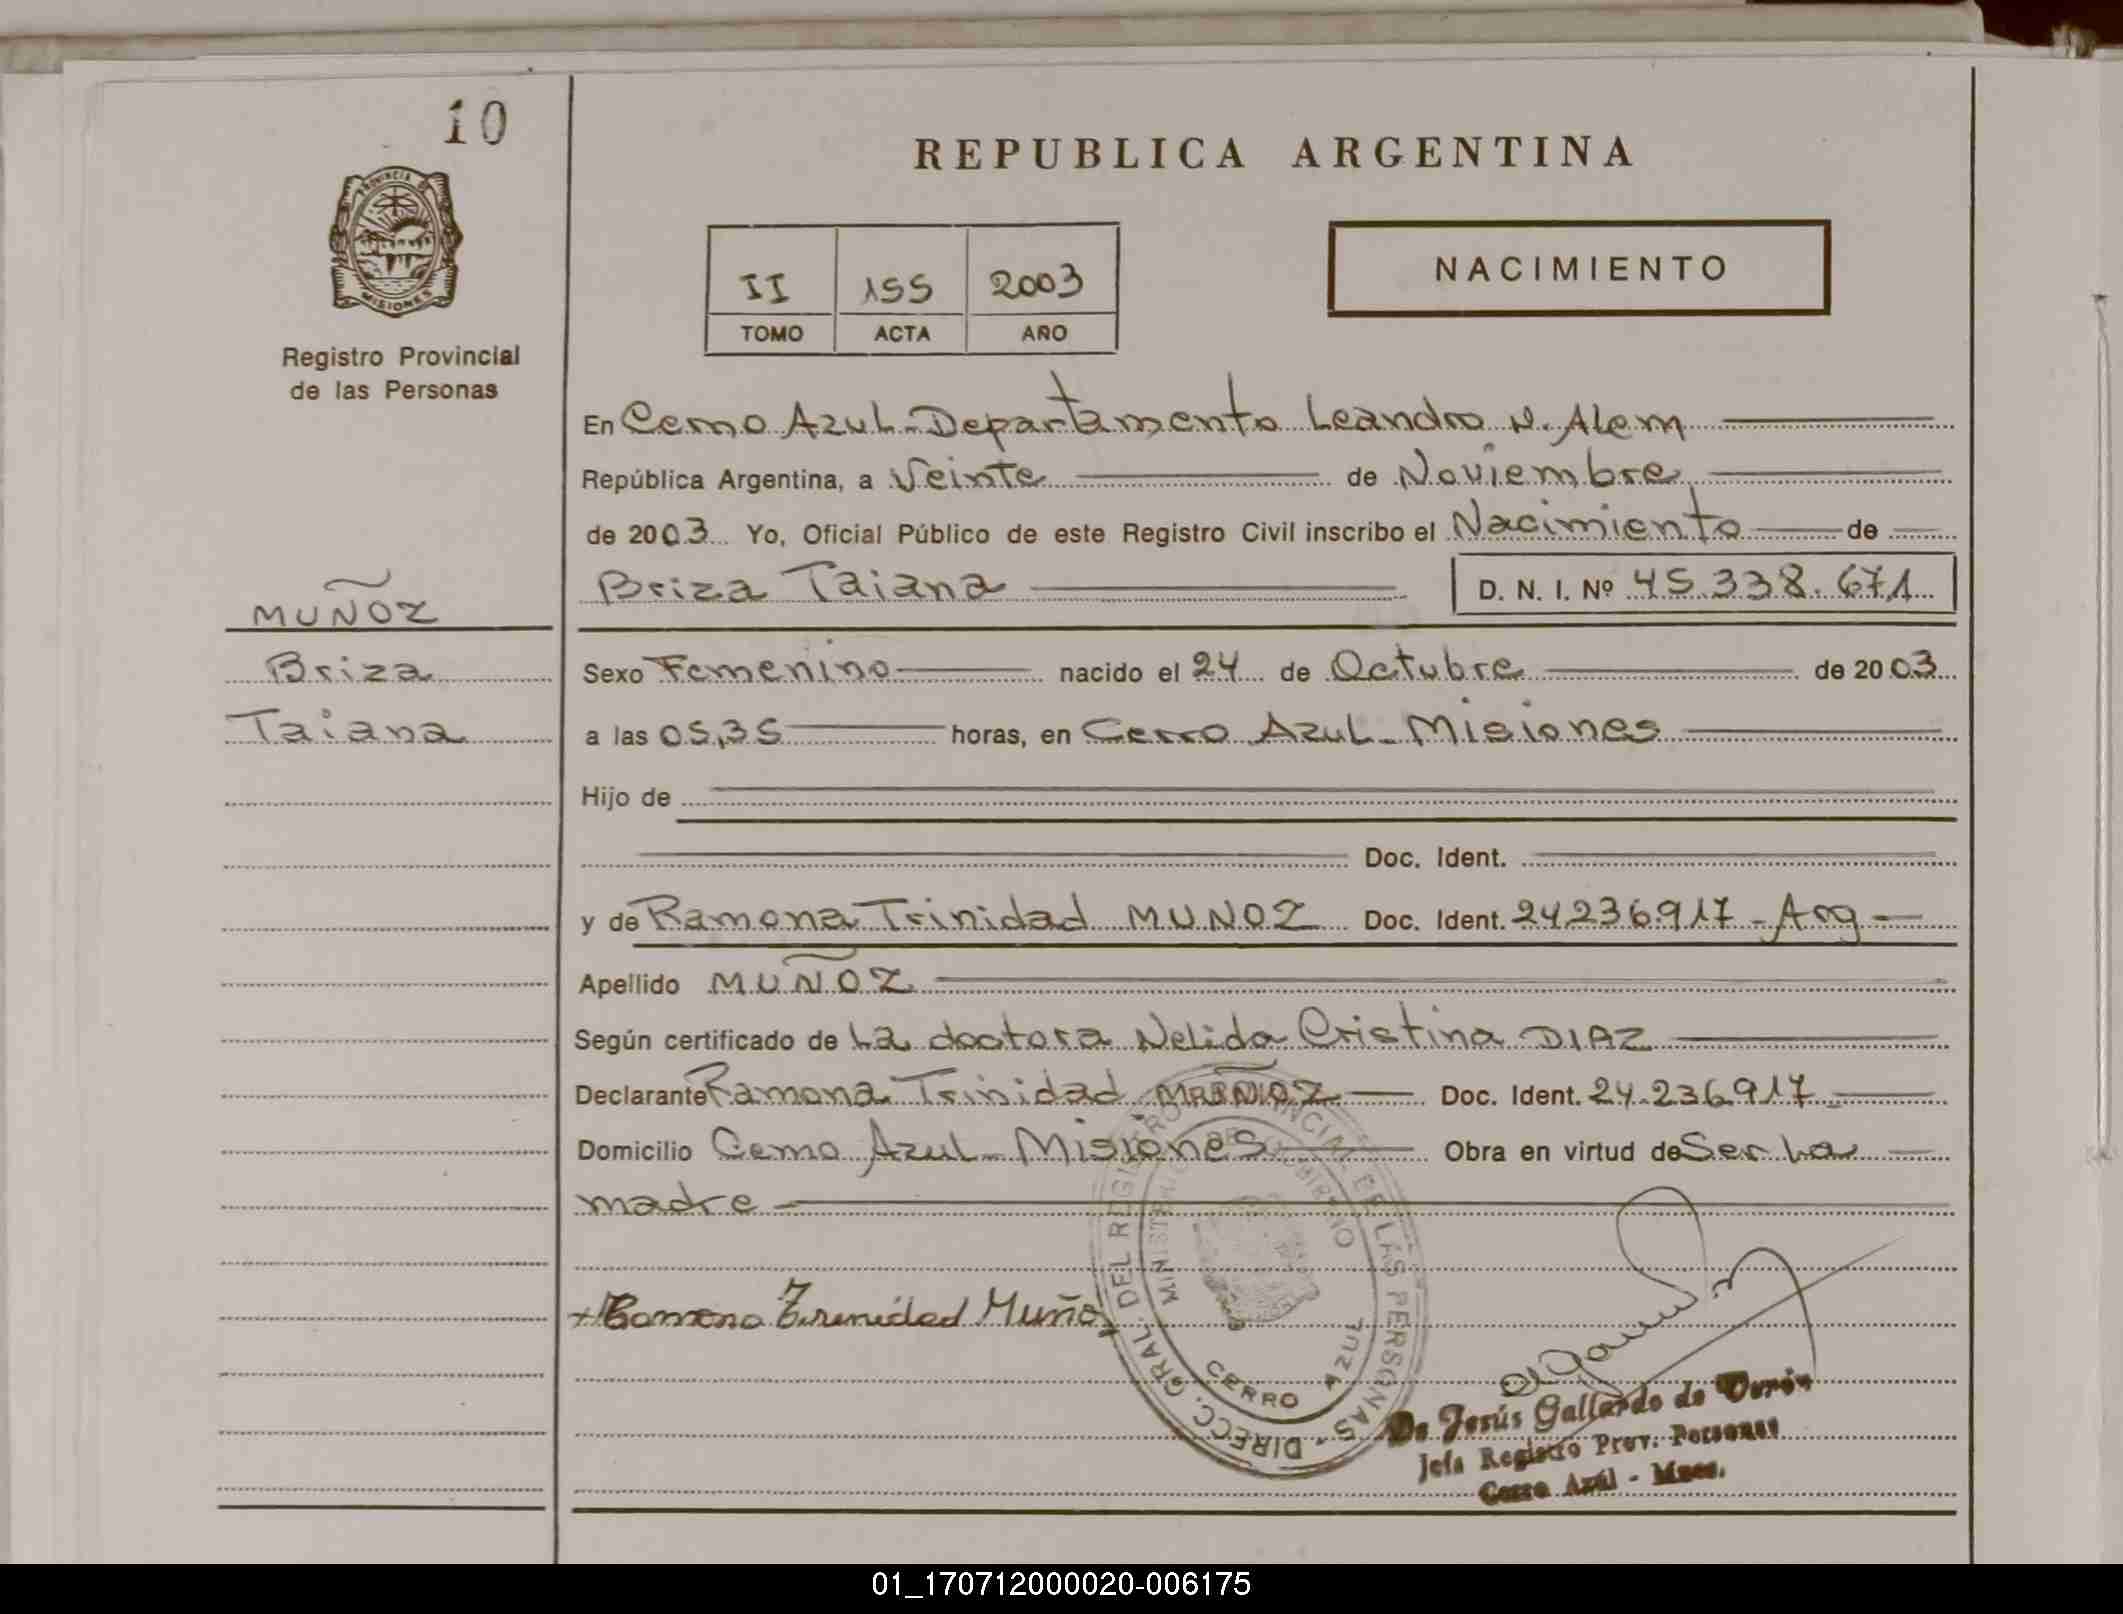 10
REPUBLICA ARGENTINA
PROVINCIA DE
MISIONES
Registro Provincial
de las Personas
II 155 2003
TOMO ACTA AÑO
NACIMIENTO
En Cerro Azul - Departamento Leandro N. Alem
República Argentina, a Veinte de Noviembre
de 2003 Yo, Oficial Público de este Registro Civil inscribo el Nacimiento de
Briza Taiana D. N. I. Nº 45.338.671
MUÑOZ
Briza
Taiana
Sexo Femenino nacido el 24 de Octubre de 2003
a las 05,35 horas, en Cerro Azul - Misiones
Hijo de
Doc. Ident.
y de Ramona Trinidad MUNOZ Doc. Ident. 24.236.917 - Arg -
Apellido MUÑOZ
Según certificado de La doctora Nelida Cristina DIAZ
Declarante Ramona Trinidad MUÑOZ Doc. Ident. 24.236.917
Domicilio Cerro Azul - Misiones Obra en virtud de Ser La
madre
Ramona Trinidad Muñoz
DIRECC. GRAL. DEL REGISTRO PROVINCIAL DE LAS PERSONAS
MINISTERIO DE GOBIERNO
CERRO AZUL
De Jesús Gallardo de Verón
Jefa Registro Prov. Personas
Cerro Azúl - Mnes.
01_170712000020-006175